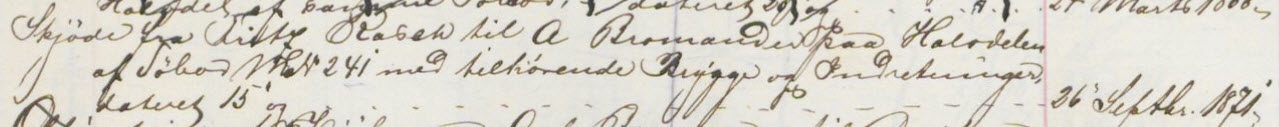 Halvdel af
24 Marts
Skjöde fra Fritz Rasch til A Bromander paa Halvdelen
af Söbod M No 241 med tilhörende Brygge og Indretninger,
dateret 15 og 26 Septbr. 1871.